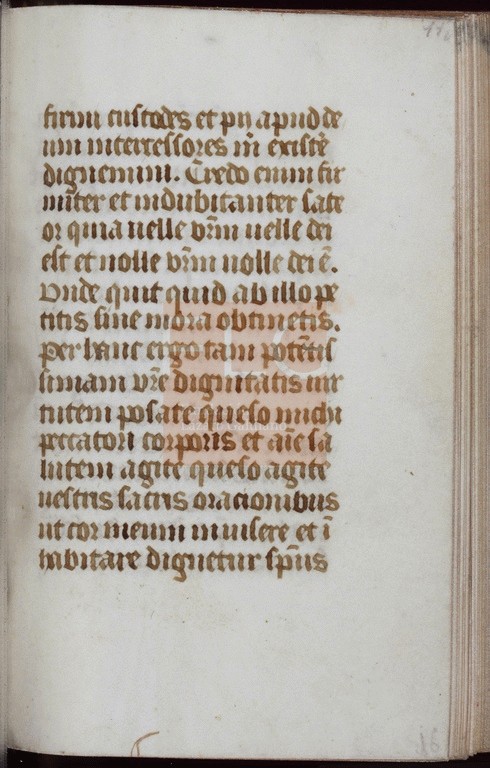 firmi custodes et pii apud de
um intercessores mi existe
dignemini. Credo enim fir
miter et indubitanter fate
or quia uelle vrm uelle dei
est et nolle vrm nolle dei e.
Unde quit quid ab illo pe
titis sine mora obtinetis.
Per hanc ergo tam potetis
simam vre dignitatis uir
tutem posate queso michi
peccatori corporis et aie sa
lutem agite queso agite
uestris sacris oracionibus
ut cor meum inuisere et i
habitare dignetur spus